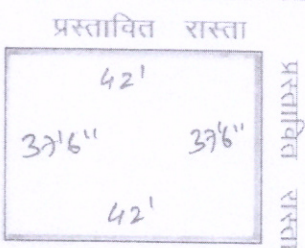 प्रस्तावित रास्ता
42'
37'6" 37'6"
42'
प्रस्तावित रास्ता